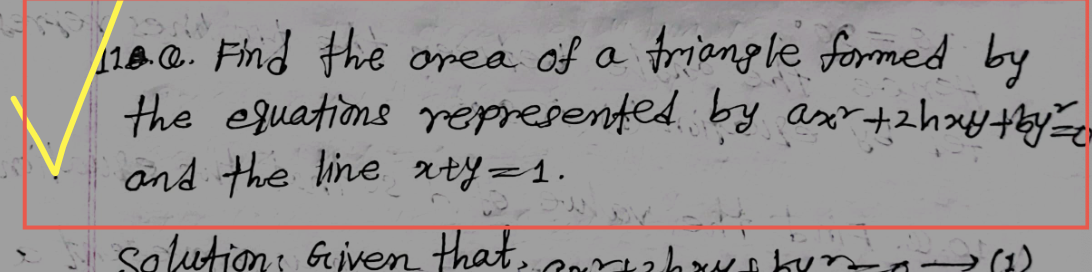 Q. Find the area of a triangle formed by
the equations represented by ax²+2hxy+by²=0
and the line x+y=1.
Solution: Given that, ax²+2hxy+by²=0 → (1)